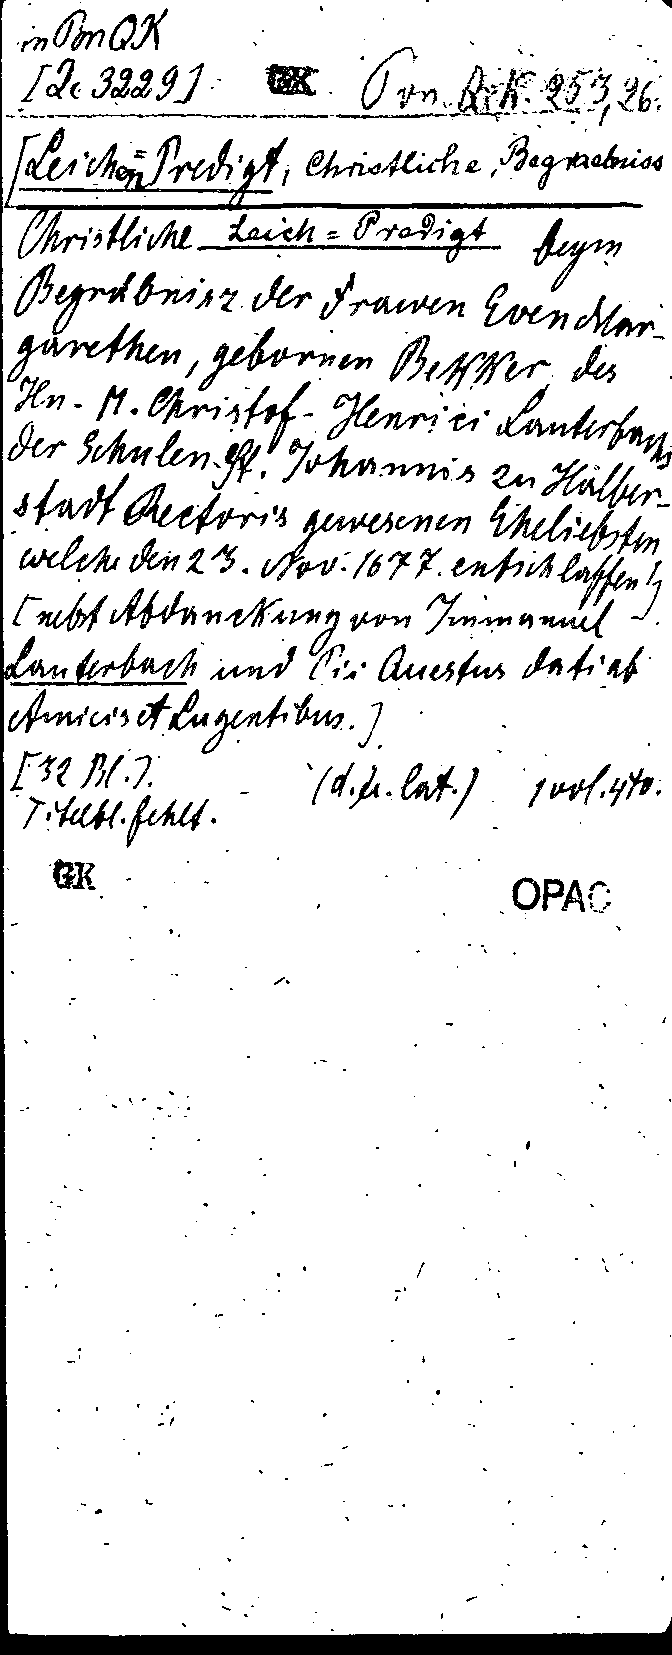 in Bn QK
[Zc 3229] GK Pon. QK. 253,26.
[Leichen=Predigt, Christliche, Begraebniss
Christliche Leich=Predigt beym
Begräbnisz der Frawen Even Mar-
garethen, gebornen Bekker des
Hn. M. Christof-Henrici Lauterbachs
der Schulen St. Johannis zu Halber-
stadt Rectoris gewesenen Eheliebsten
welche den 23. Nov. 1677. entschlaffen!]
[nebst Abdanckung von Immanuel
Lauterbach und Pii Questus dati ab
Amicis et Lugentibus.]
[32 Bl.]. (d. u. lat.) 1 vol. 4to.
Titelbl. fehlt.
GK OPAC